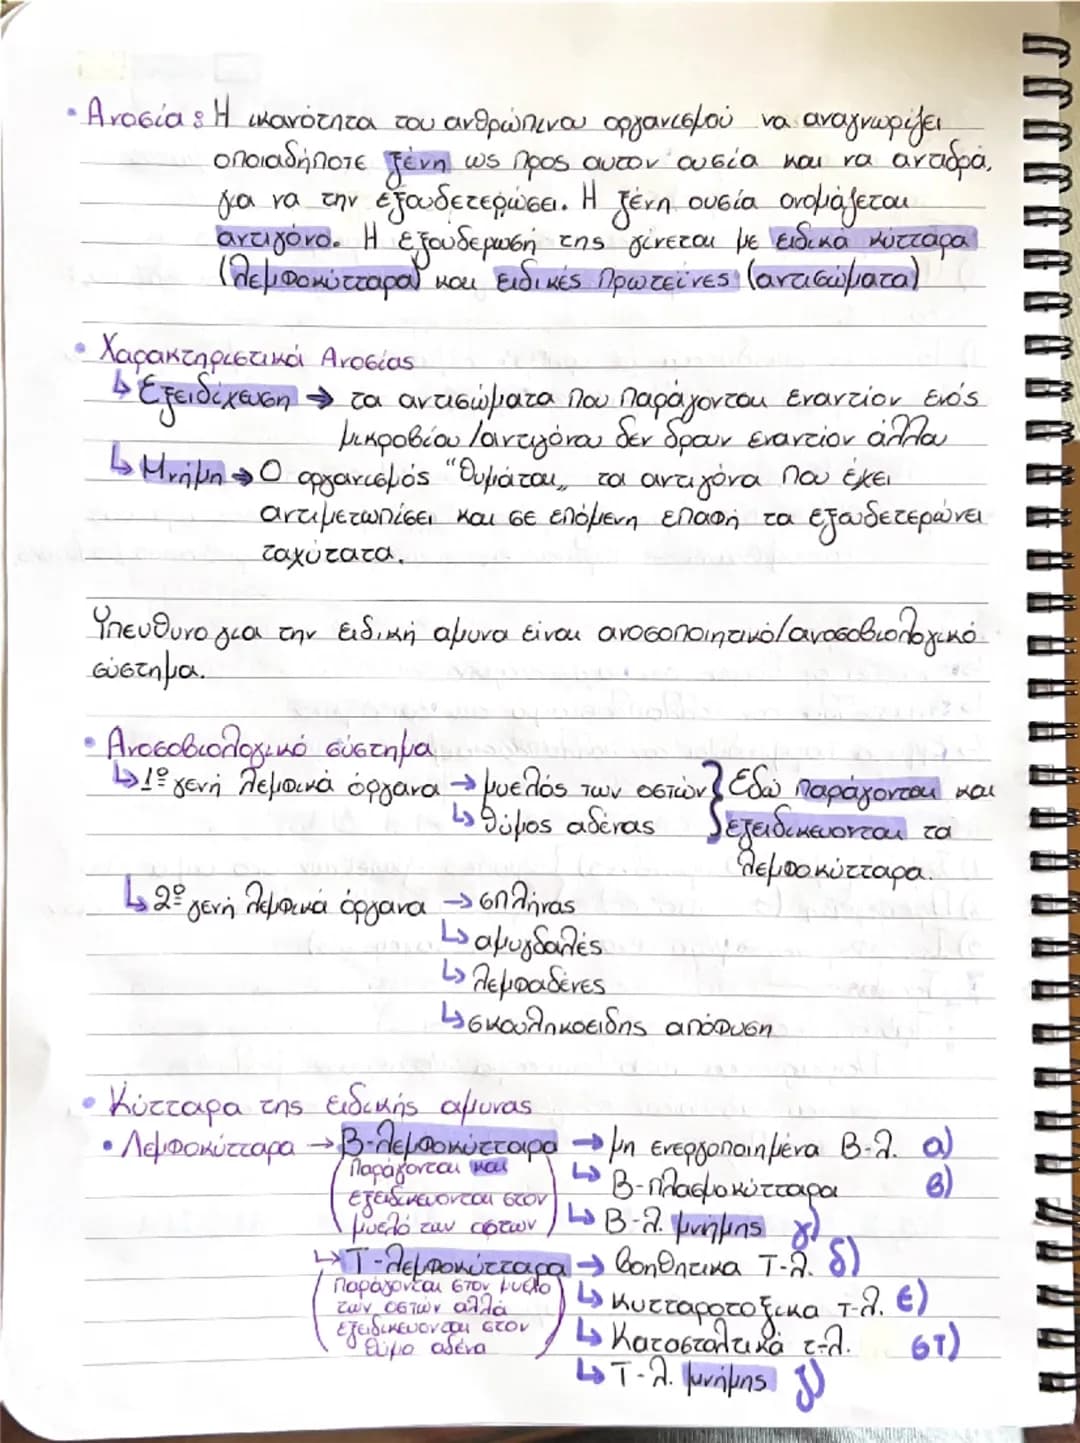 • Ανοσία: Η ικανότητα του ανθρώπινου οργανισμού να αναγνωρίζει
οποιαδήποτε ξένη ως προς αυτον ουσία και να αντιδρά,
για να την εξουδετερώσει. Η ξένη ουσία ονομάζεται
αντιγόνο. Η εξουδερωσή της γίνεται με ειδικά κύτταρα
(λεμφοκύτταρα) και ειδικές πρωτεΐνες (αντισώματα)
• Χαρακτηριστικά Ανοσίας
↳ Εξειδίκευση → τα αντισώματα που παράγονται εναντίον ενός
μικροβίου/αντιγόνου δεν δρουν εναντίον άλλου
↳ Μνήμη → Ο οργανισμός "θυμάται" τα αντιγόνα που έχει
αντιμετωπίσει και σε επόμενη επαφή τα εξουδετερώνει
ταχύτατα.
Υπευθυνο για την ειδική αμυνα είναι ανοσοποιητικό/ανοσοβιολογικό
σύστημα.
• Ανοσοβιολογικό σύστημα
↳ 1º γενή λεμφικά όργανα → μυελός των οστών } Εδώ παράγονται και
↳ θύμος αδένας } εξειδικευονται τα
λεμφοκύτταρα.
↳ 2º γενή λεμφικά όργανα → σπλήνας
↳ αμυγδαλές
↳ λεμφαδένες
↳ σκουληκοειδης απόφυση
• Κύτταρα της ειδικής αμυνας
• Λεμφοκύτταρα → Β-λεμφοκύτταρα → μη ενεργοποιημένα Β-λ. α)
(παράγονται και ↳ Β-πλασμοκύτταρα β)
εξειδικευονται στον
μυελό των οστων) ↳ Β-λ. μνήμης γ)
↳ Τ-λεμφοκύτταρα → βοηθητικα Τ-λ. δ)
(παράγονται στον μυελο
των οστών αλλά ↳ κυτταροτοξικα τ-λ. ε)
εξειδικευονται στον ↳ Κατασταλτικά τ-λ. στ)
θύμο αδένα) ↳ Τ-λ. μνήμης ζ)